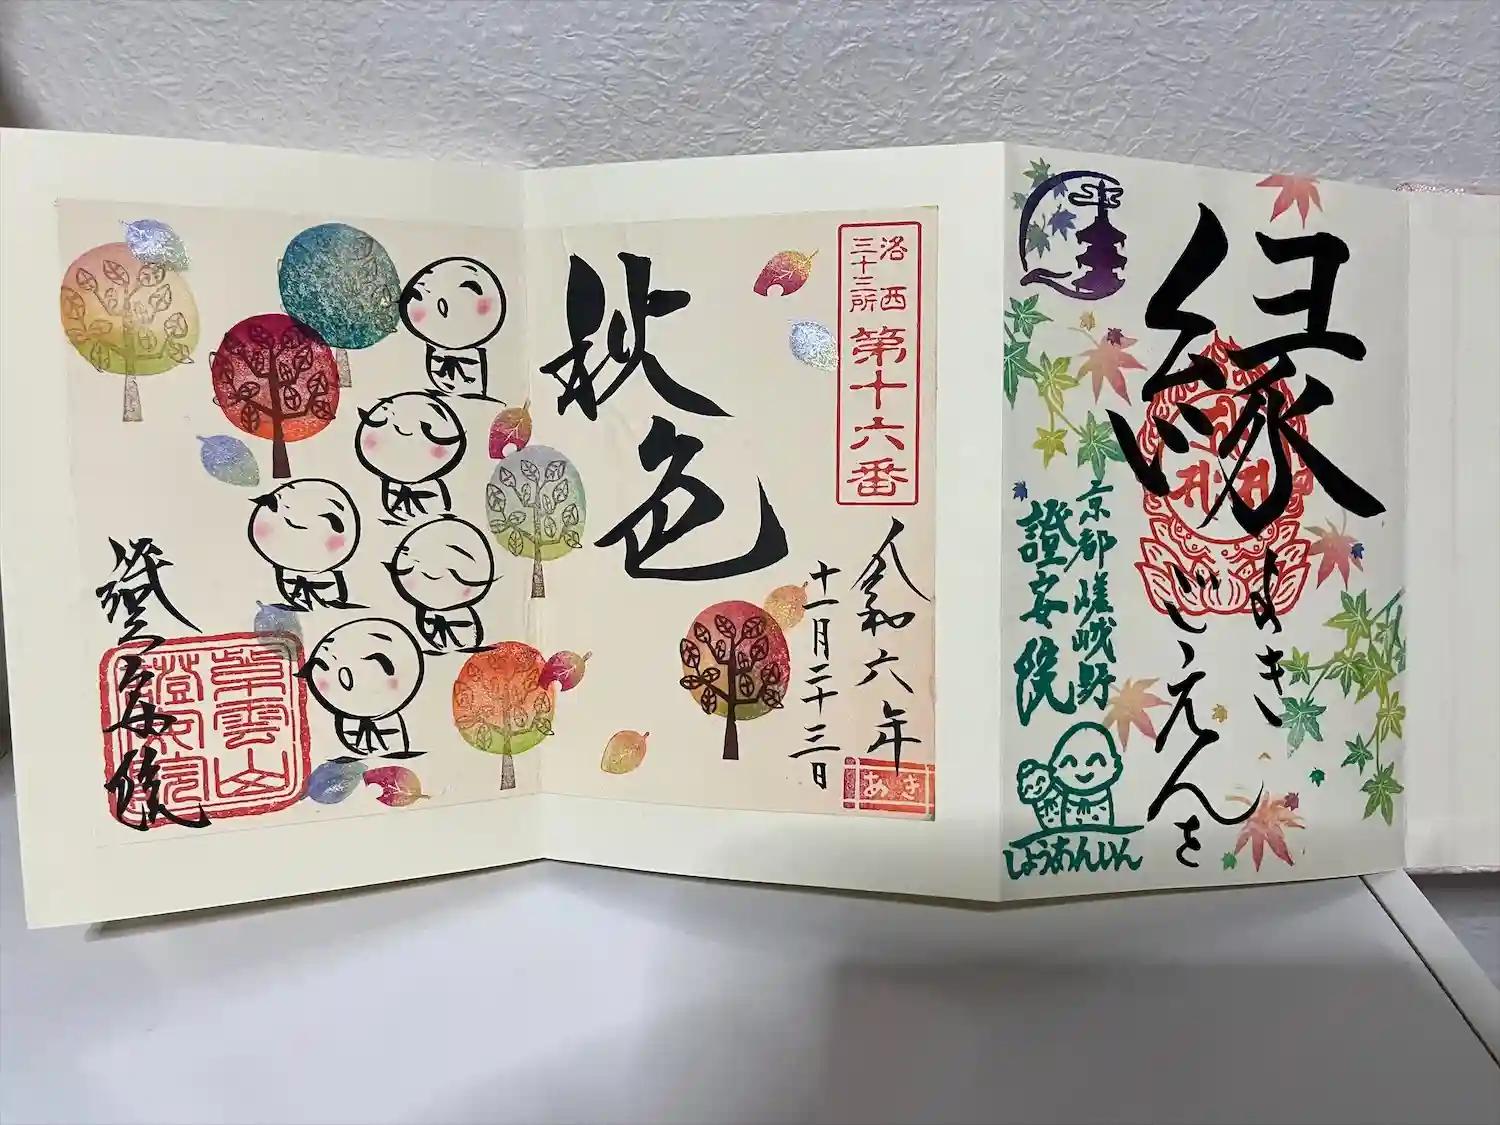 洛西
三十三所
第十六番
秋色
令和六年
十一月二十三日
あき
證安院
華雲山
證安院
縁
よき
ごえんを
京都嵯峨野
證安院
しょうあんいん